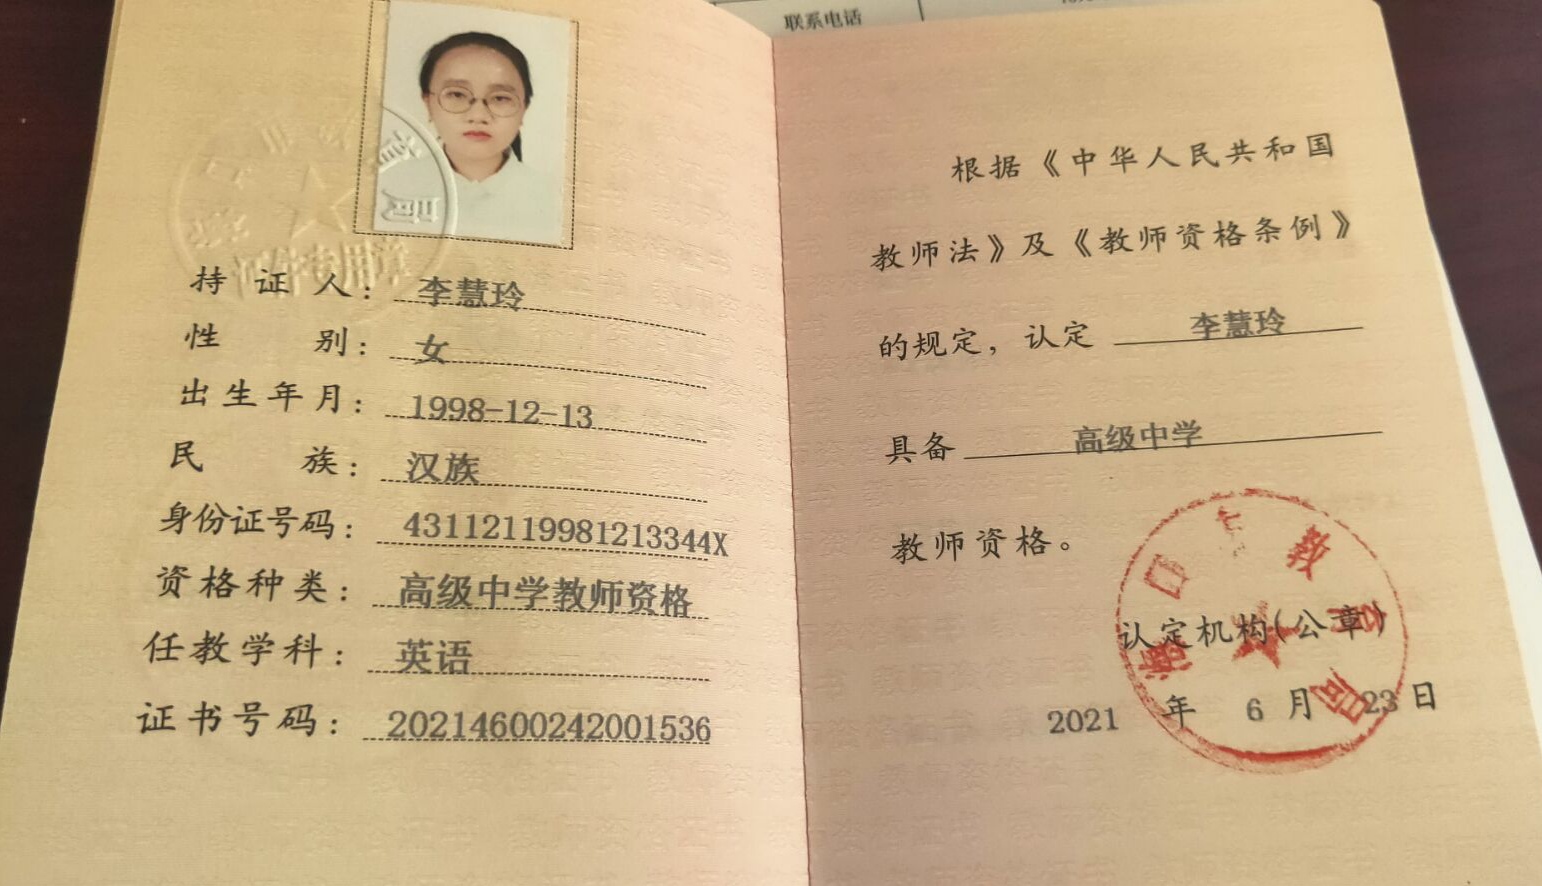 联系电话
持证人：李慧玲
性别：女
出生年月：1998-12-13
民族：汉族
身份证号码：43112119981213344X
资格种类：高级中学教师资格
任教学科：英语
证书号码：20214600242001536
根据《中华人民共和国
教师法》及《教师资格条例》
的规定，认定 李慧玲
具备 高级中学
教师资格。
认定机构(公章)
2021 年 6 月 23 日
海口市教育局